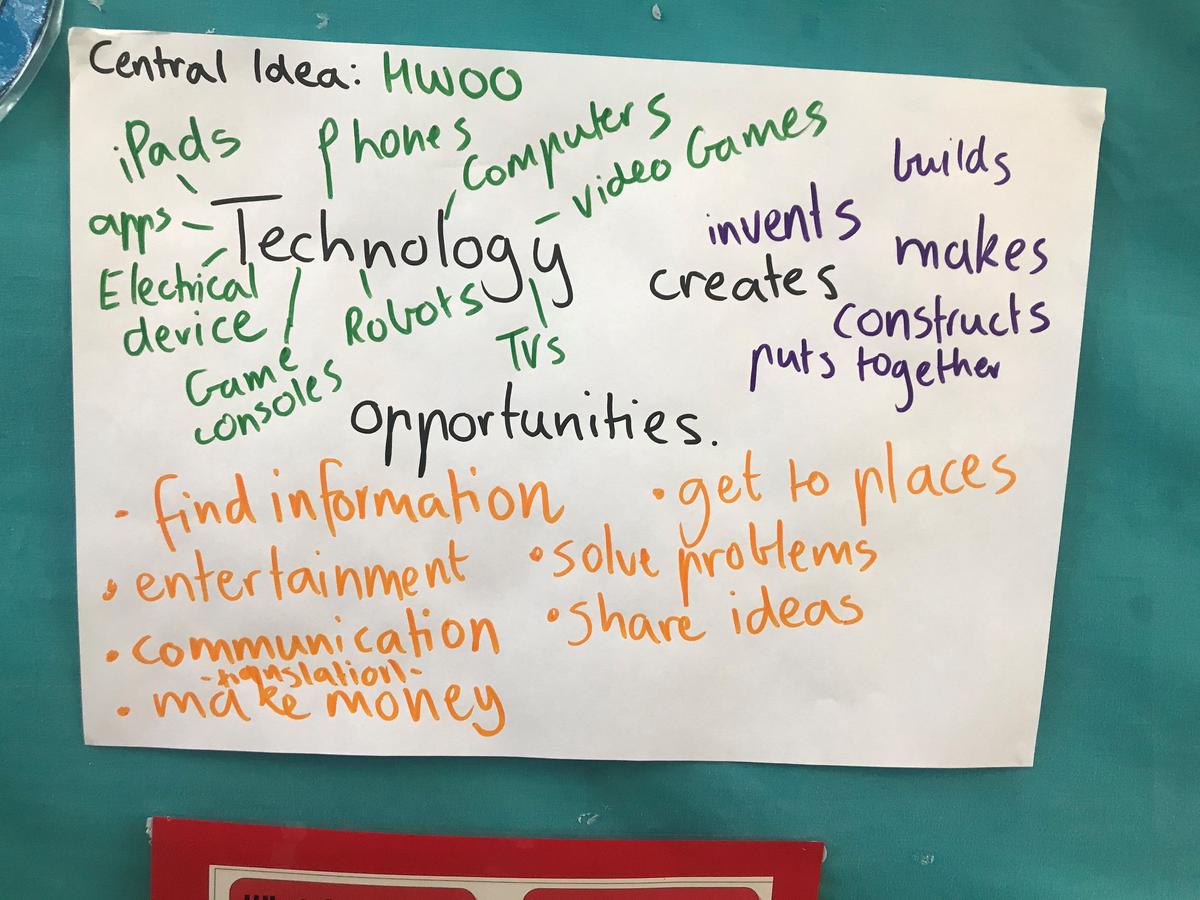 Central Idea: HWOO
iPads
Phones
Computers
video Games
apps
Technology
Electrical
device
Game
consoles
Robots
TVs
builds
invents
makes
creates
constructs
puts together
opportunities.
- find information
• get to places
• entertainment
• solve problems
• communication
- translation -
• share ideas
• make money